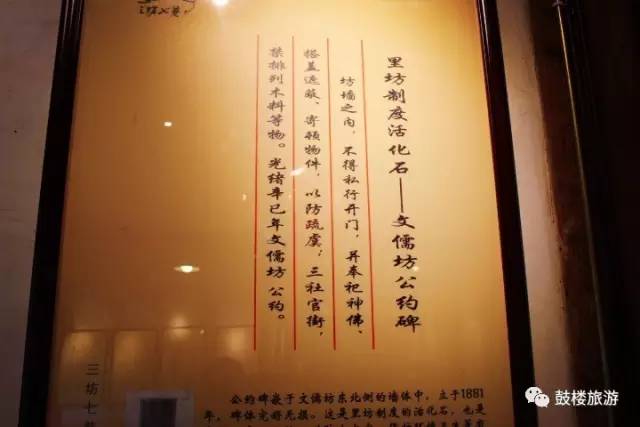 里坊制度活化石——文儒坊公约碑
坊墙之内，不得私行开门，并奉祀神佛、
搭盖遮蔽、寄顿物件，以防疏虞；三社官街，
禁排列木料等物。光绪辛巳年文儒坊公约。
三坊七
公约碑嵌于文儒坊东北侧的墙体中，立于1881
年，碑体完好无损。这是里坊制度的活化石，也是
鼓楼旅游